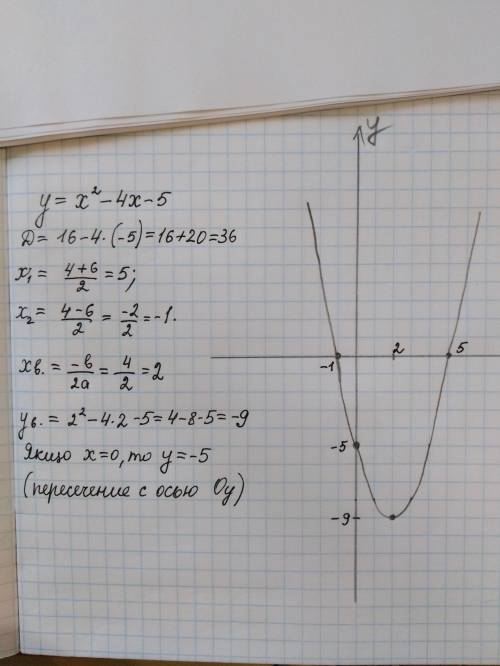 y = x² - 4x - 5
D = 16 - 4·(-5) = 16 + 20 = 36
x₁ = (4+6)/2 = 5;
x₂ = (4-6)/2 = -2/2 = -1.
xв. = -в/2a = 4/2 = 2
yв. = 2² - 4·2 - 5 = 4 - 8 - 5 = -9
Якщо x=0, то y=-5
(пересечение с осью Oy)
y
-1 2 5
-5
-9